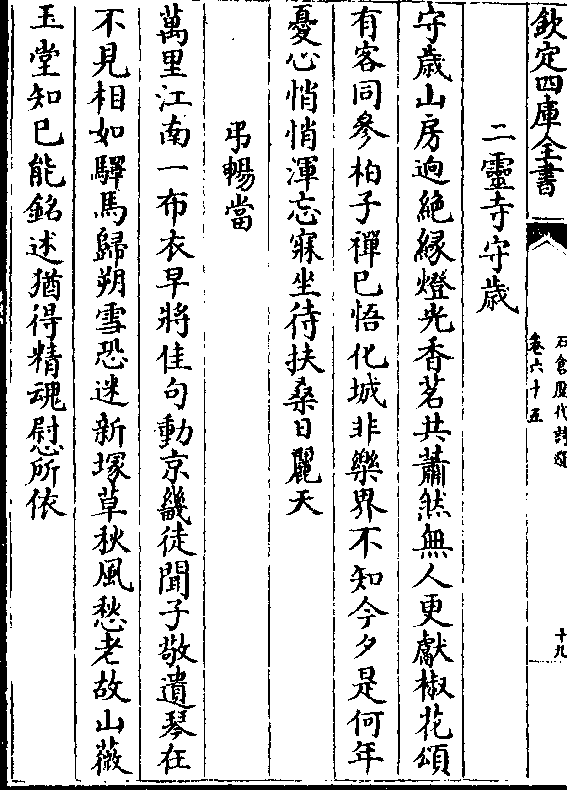 欽定四庫全書
石倉歷代詩選
卷六十五
十九
二靈寺守歲
守歲山房逈絶縁燈光香茗共蕭然無人更獻椒花頌
有客同參柏子禪已悟化城非樂界不知今夕是何年
憂心悄悄渾忘寐坐待扶桑日麗天
弔暢當
萬里江南一布衣早將佳句動京畿徒聞子敬遺琴在
不見相如驛馬歸朔雪恐迷新塚草秋風愁老故山薇
玉堂知己能銘述猶得精魂慰所依